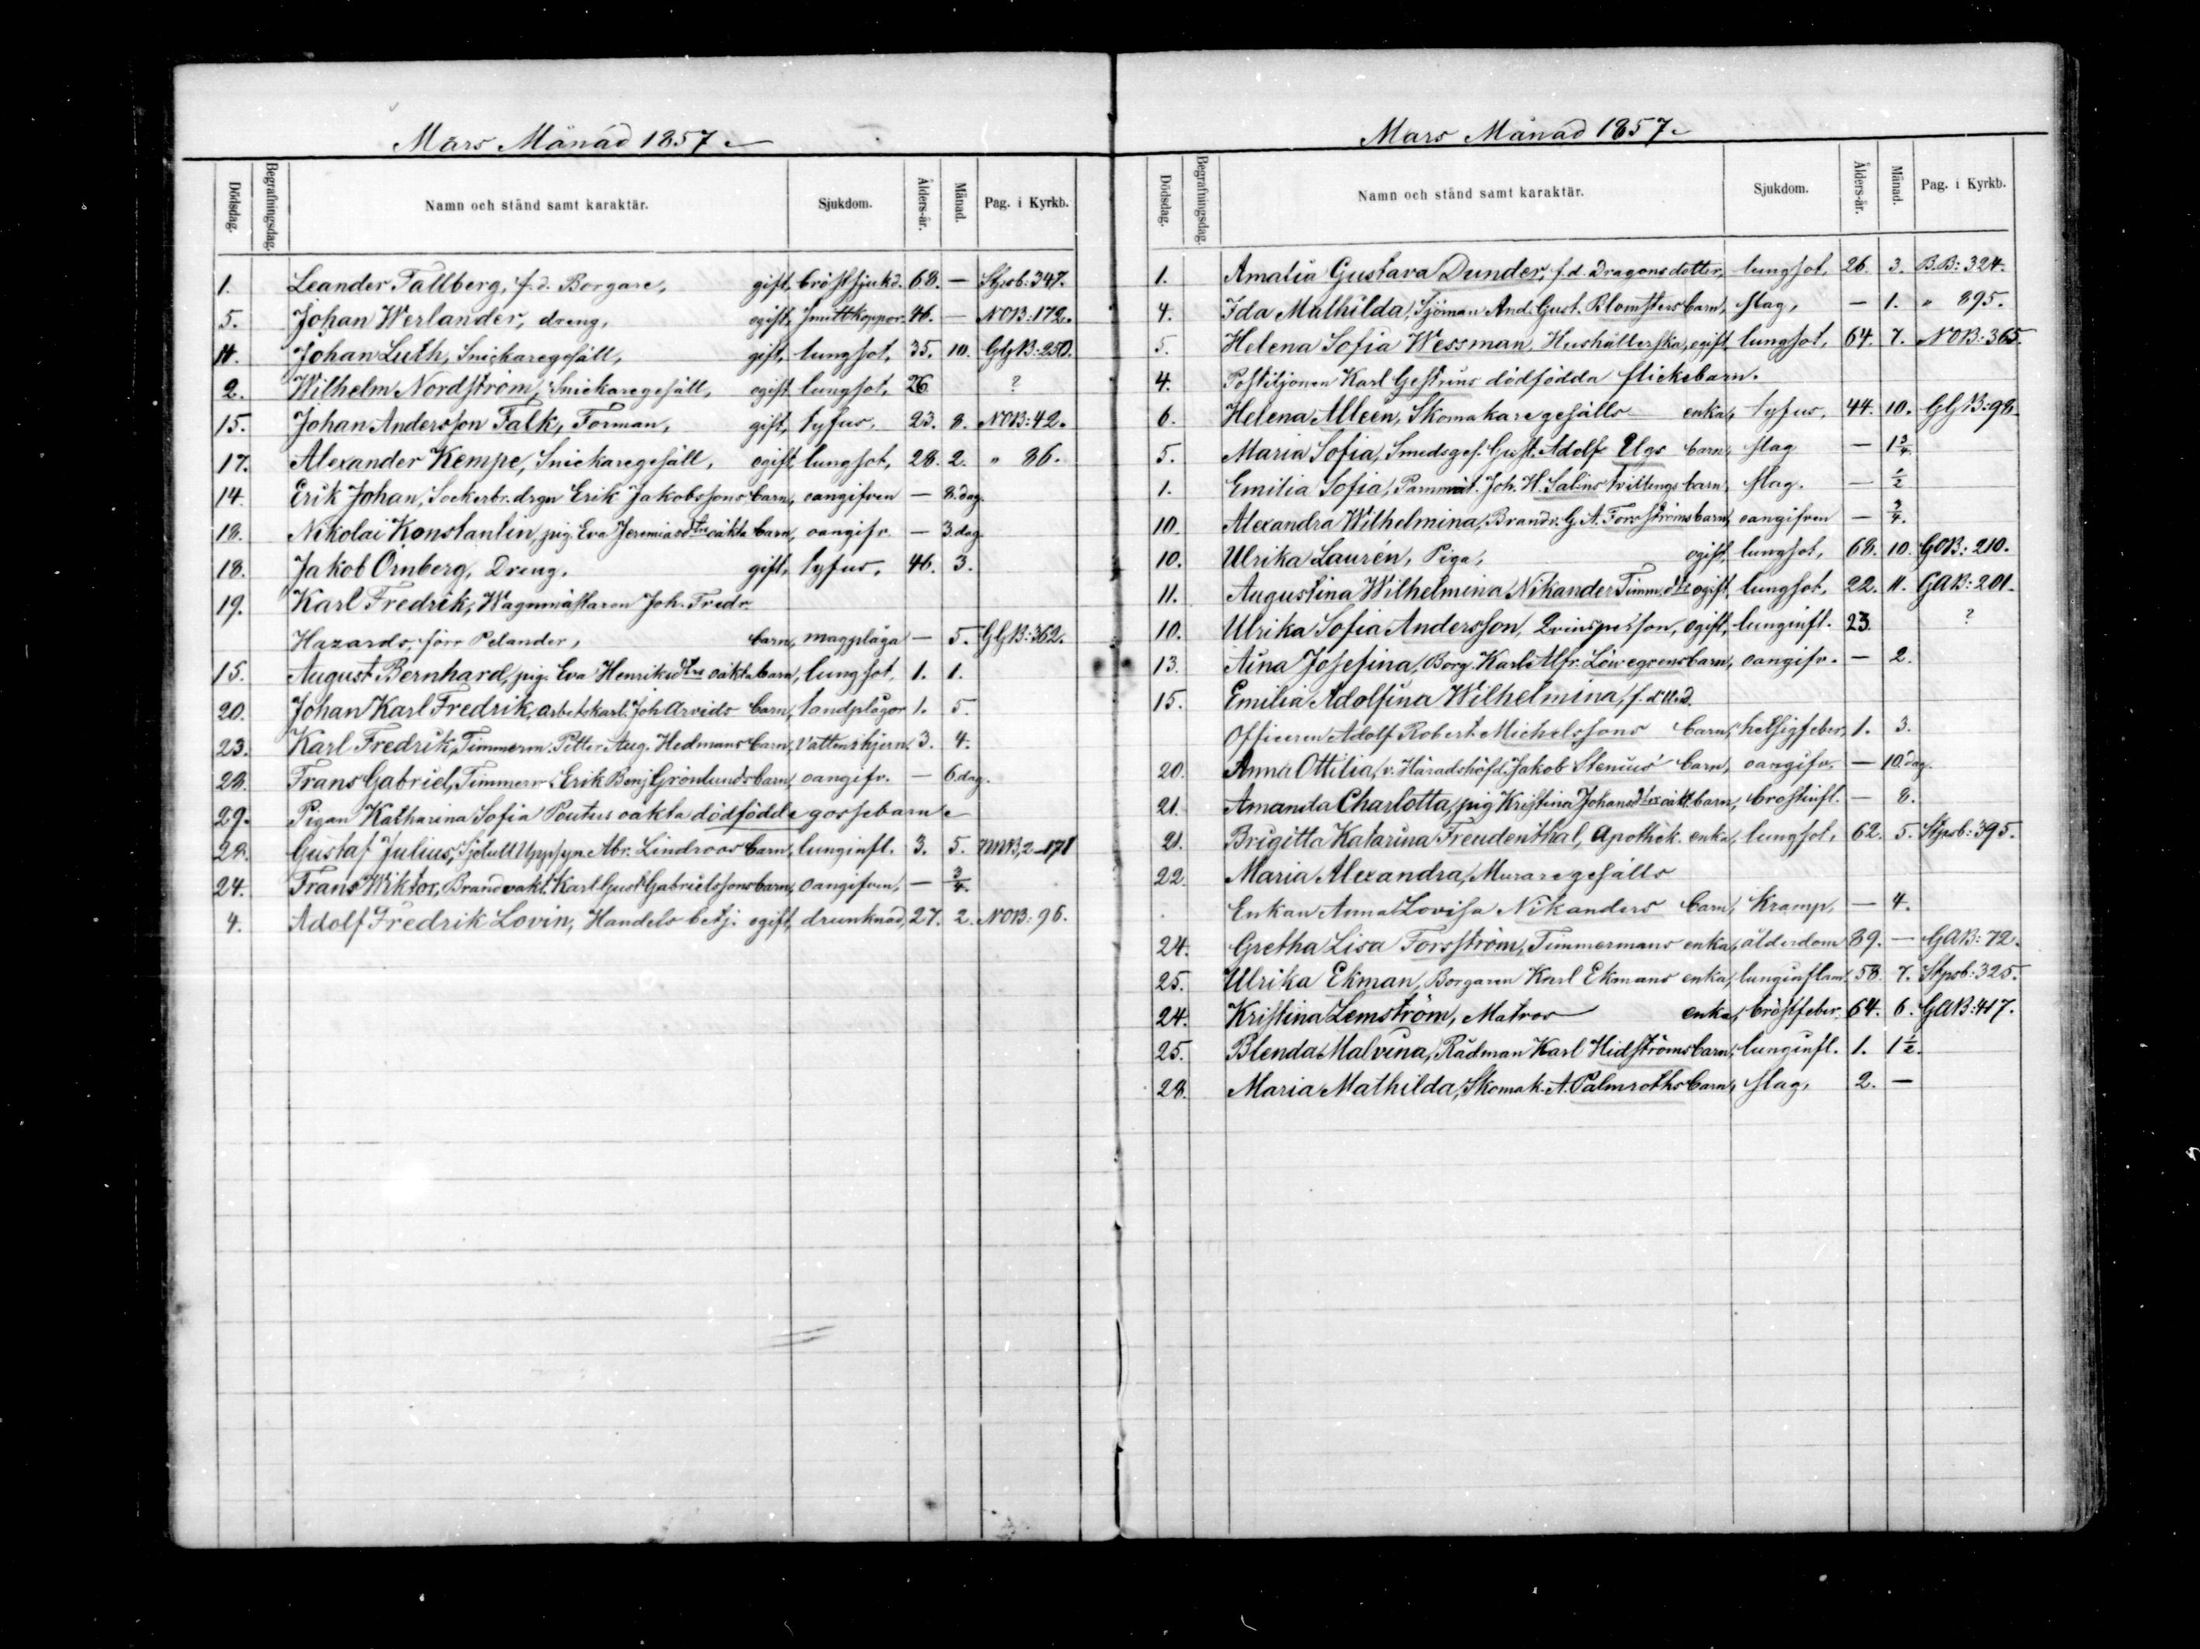 Mars Månad 1857
Dödsdag. Begrafningsdag. Namn och stånd samt karaktär. Sjukdom. Ålders-år. Månad. Pag. i Kyrkb.
1. Leander Tallberg, f.d. Borgare, gift, bröstsjukd. 68. — Stpsb: 347.
5. Johan Werlander, dreng, ogift, smittkoppor. 46. — NOB: 172.
11. Johan Luth, Snickaregesäll, gift, lungsot, 35. 10. GGB: 250.
2. Wilhelm Nordström, Snickaregesäll, ogift lungsot, 26 ?
15. Johan Andersson Falk, Forman, gift, tyfus, 23. 8. NOB: 42.
17. Alexander Kempe, Snickaregesäll, ogift, lungsot, 28. 2. " 86.
14. Erik Johan, Sockerbr. drgn Erik Jakobssons barn, oangifven — 8. dag.
18. Nikolai Konstantin, pig. Eva Jeremiasdtrs oäkta barn, oangifv. — 3. dag.
18. Jakob Örnberg, Dreng, gift, tyfus, 46. 3.
19. Karl Fredrik, Wagnmästaren Joh. Fredr.
Hazards, förr Pelander, barn, magplåga — 5. GGB: 362.
15. August Bernhard, pig. Eva Henriksdtrs oäkta barn, lungsot, 1. 1.
20. Johan Karl Fredrik, arbetskarl. Joh Arvids barn, tandplågor 1. 5.
23. Karl Fredrik, Timmerm. Petter Aug. Hedmans barn, Vattenihjern. 3. 4.
28. Frans Gabriel, Timmerm. Erik Benj. Grönlunds barn, oangifv. — 6. dag.
29. Pigan Katharina Sofia Pontus oäkta dödfödde gossebarn
28. Gustaf Julius, Sjötull Uppsyn. Abr. Lindroos barn, lunginfl. 3. 5. MMB, 2-171
24. Frans Wiktor, Brandvakt. Karl Gust Gabrielssons barn, oangifven, — 3/4.
4. Adolf Fredrik Lovin, Handels betj. ogift, drunknad, 27. 2. NOB: 96.
Mars Månad 1857
Dödsdag. Begrafningsdag. Namn och stånd samt karaktär. Sjukdom. Ålders-år. Månad. Pag. i Kyrkb.
1. Amalia Gustava Dunder, f.d. Dragons dotter, lungsot, 26. 3. B.B: 324.
4. Ida Mathilda, Sjöman And. Gust. Blomsters barn, slag, — 1. " 895.
5. Helena Sofia Wessman, Hushållerska, ogift, lungsot, 64. 7. NOB: 365.
4. Postiljonen Karl Gestrins dödfödda flickebarn.
6. Helena Alleen, Skomakaregesälls enka, tyfus, 44. 10. GGB: 98.
5. Maria Sofia, Smedsges. Gust. Adolf Elgs barn, slag — 1 3/4.
1. Emilia Sofia, Joh. H. Salins tvillings barn, slag. — 1/2
10. Alexandra Wilhelmina, Brandv. G. A. Forsströms barn, oangifven — 3/4.
10. Ulrika Laurén, Piga, ogift, lungsot, 68. 10. GOB: 210.
11. Augustina Wilhelmina Nikander Timm. dtr ogift, lungsot, 22. 11. GAB: 201.
10. Ulrika Sofia Andersson, Qvinsperson, ogift, lunginfl. 23. ?
13. Aina Josefina, Borg. Karl Alfr. Löwegrens barn, oangifv. — 2.
15. Emilia Adolfina Wilhelmina, f.d.
Officeren Adolf Robert Michelssons barn, hetsigfeber, 1. 3.
20. Anna Ottilia, v. Häradshöfd. Jakob Stenius' barn, oangifv. — 10. dag.
21. Amanda Charlotta, pig Kristina Johansdtrs oäkt. barn, bröstinfl. — 8.
21. Brigitta Katarina Freudenthal, Apothek. enka, lungsot, 62. 5. Stpsb: 395.
22. Maria Alexandra, Muraregesälls
Enkan Anna Lovisa Nikanders barn, kramp, — 4.
24. Gretha Lisa Forsström, Timmermans enka, ålderdom 89. — GAB: 72.
25. Ulrika Ekman, Borgaren Karl Ekmans enka, lunginflam. 58. 7. Stpsb: 325.
24. Kristina Lemström, Matros enka, bröstfeber. 64. 6. GAB: 417.
25. Blenda Malvina, Rådman Karl Hidströms barn, lunginfl. 1. 1 1/2.
28. Maria Mathilda, Skomak. A. Palmroths barn, slag, 2. —